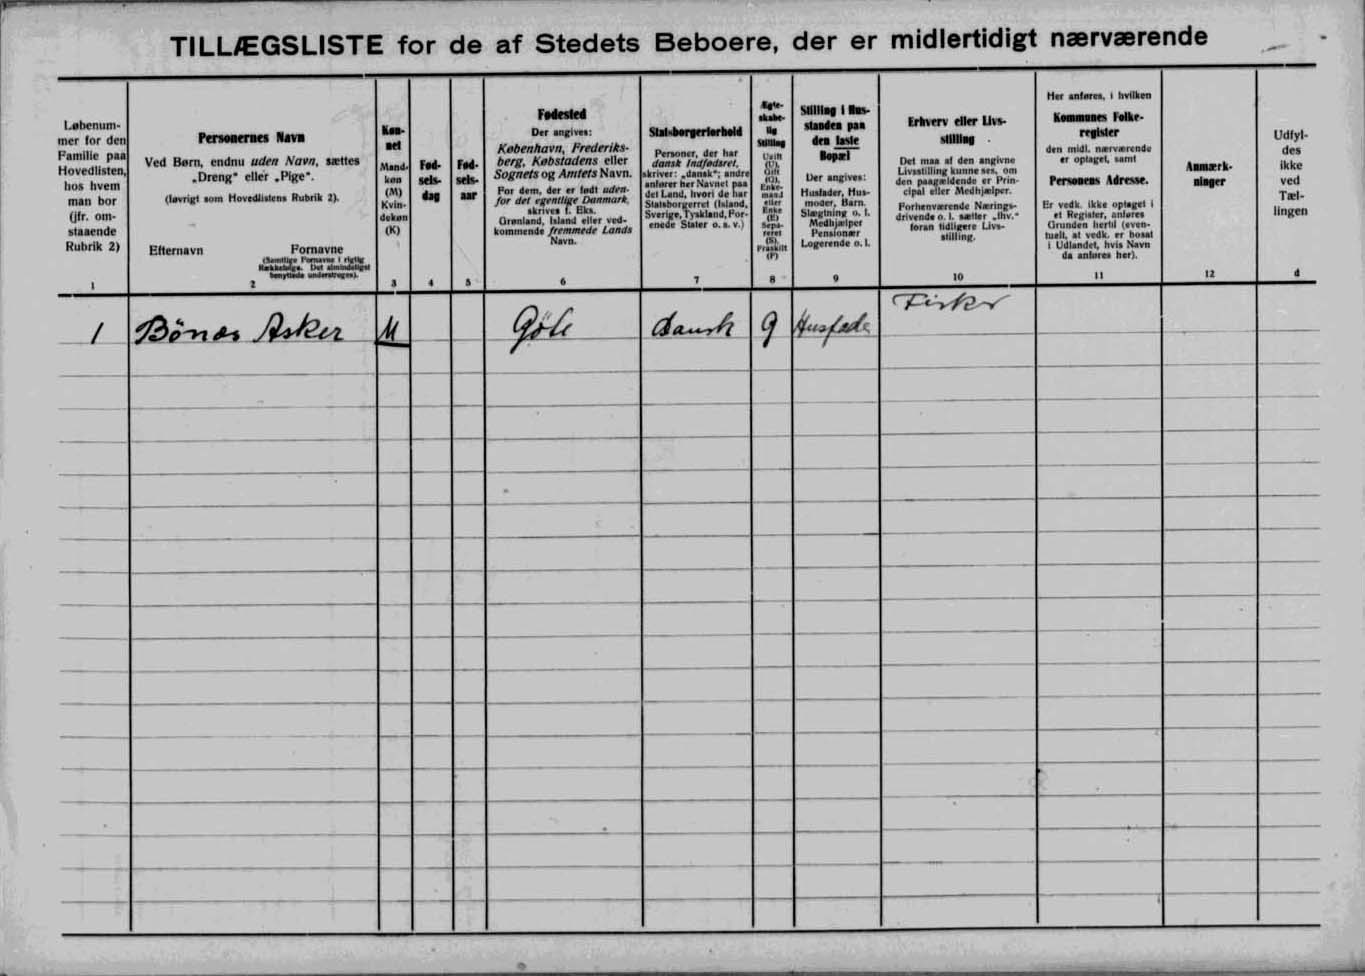 TILLÆGSLISTE for de af Stedets Beboere, der er midlertidigt nærværende
Løbenum-
mer for den
Familie paa
Hovedlisten,
hos hvem
man bor
(jfr. om-
staaende
Rubrik 2)
1
Personernes Navn
Ved Børn, endnu uden Navn, sættes
„Dreng“ eller „Pige“.
(Iøvrigt som Hovedlistens Rubrik 2).
Efternavn Fornavne
(Samtlige Fornavne i rigtig
Rækkefølge. Det almindeligst
benyttede understreges).
2
Køn-
net
Mand-
køn
(M)
Kvin-
dekøn
(K)
3
Fød-
sels-
dag
4
Fød-
sels-
aar
5
Fødested
Der angives:
København, Frederiks-
berg, Købstadens eller
Sognets og Amtets Navn.
For dem, der er født uden-
for det egentlige Danmark,
skrives f. Eks.
Grønland, Island eller ved-
kommende fremmede Lands
Navn.
6
Statsborgerforhold
Personer, der har
dansk Indfødsret,
skriver: „dansk“; andre
anfører her Navnet paa
det Land, hvori de har
Statsborgerret (Island,
Sverige, Tyskland, For-
enede Stater o. s. v.)
7
Ægte-
skabe-
lig
Stilling
Ugift
(U),
Gift
(G),
Enke-
mand
eller
Enke
(E)
Sepa-
reret
(S),
Fraskilt
(F)
8
Stilling i Hus-
standen paa
den faste
Bopæl
Der angives:
Husfader, Hus-
moder, Barn.
Slægtning o. l.
Medhjælper
Pensionær
Logerende o. l.
9
Erhverv eller Livs-
stilling
Det maa af den angivne
Livsstilling kunne ses, om
den paagældende er Prin-
cipal eller Medhjælper.
Forhenværende Nærings-
drivende o. l. sætter „fhv.“
foran tidligere Livs-
stilling.
10
Her anføres, i hvilken
Kommunes Folke-
register
den midl. nærværende
er optaget, samt
Personens Adresse.
Er vedk. ikke optaget i
et Register, anføres
Grunden hertil (even-
tuelt, at vedk. er bosat
i Udlandet, hvis Navn
da anføres her).
11
Anmærk-
ninger
12
Udfyl-
des
ikke
ved
Tæl-
lingen
d
1 Bönæs Asker M Göte dansk g Husfader Fisker